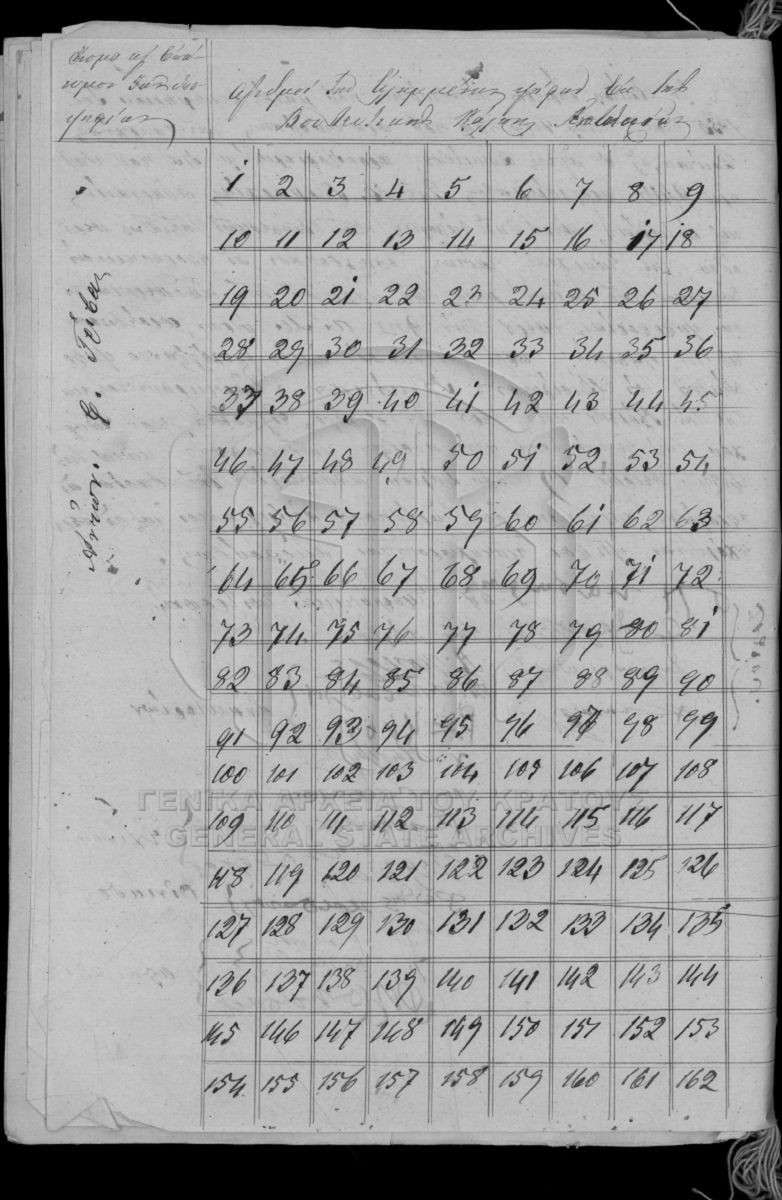 Αριθμοί
1 2 3 4 5 6 7 8 9
10 11 12 13 14 15 16 17 18
19 20 21 22 23 24 25 26 27
28 29 30 31 32 33 34 35 36
37 38 39 40 41 42 43 44 45
46 47 48 49 50 51 52 53 54
55 56 57 58 59 60 61 62 63
64 65 66 67 68 69 70 71 72
73 74 75 76 77 78 79 80 81
82 83 84 85 86 87 88 89 90
91 92 93 94 95 96 97 98 99
100 101 102 103 104 105 106 107 108
ΓΕΝΙΚΑ ΑΡΧΕΙΑ ΤΟΥ ΚΡΑΤΟΥΣ
109 110 111 112 113 114 115 116 117
GENERAL STATE ARCHIVES
118 119 120 121 122 123 124 125 126
127 128 129 130 131 132 133 134 135
136 137 138 139 140 141 142 143 144
145 146 147 148 149 150 151 152 153
154 155 156 157 158 159 160 161 162